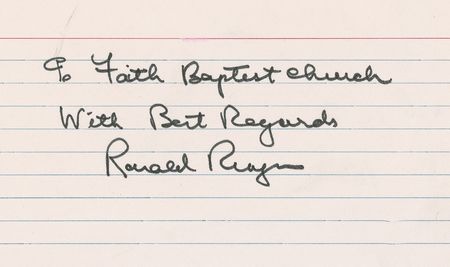 To Faith Baptist Church
With Best Regards
Ronald Reagan